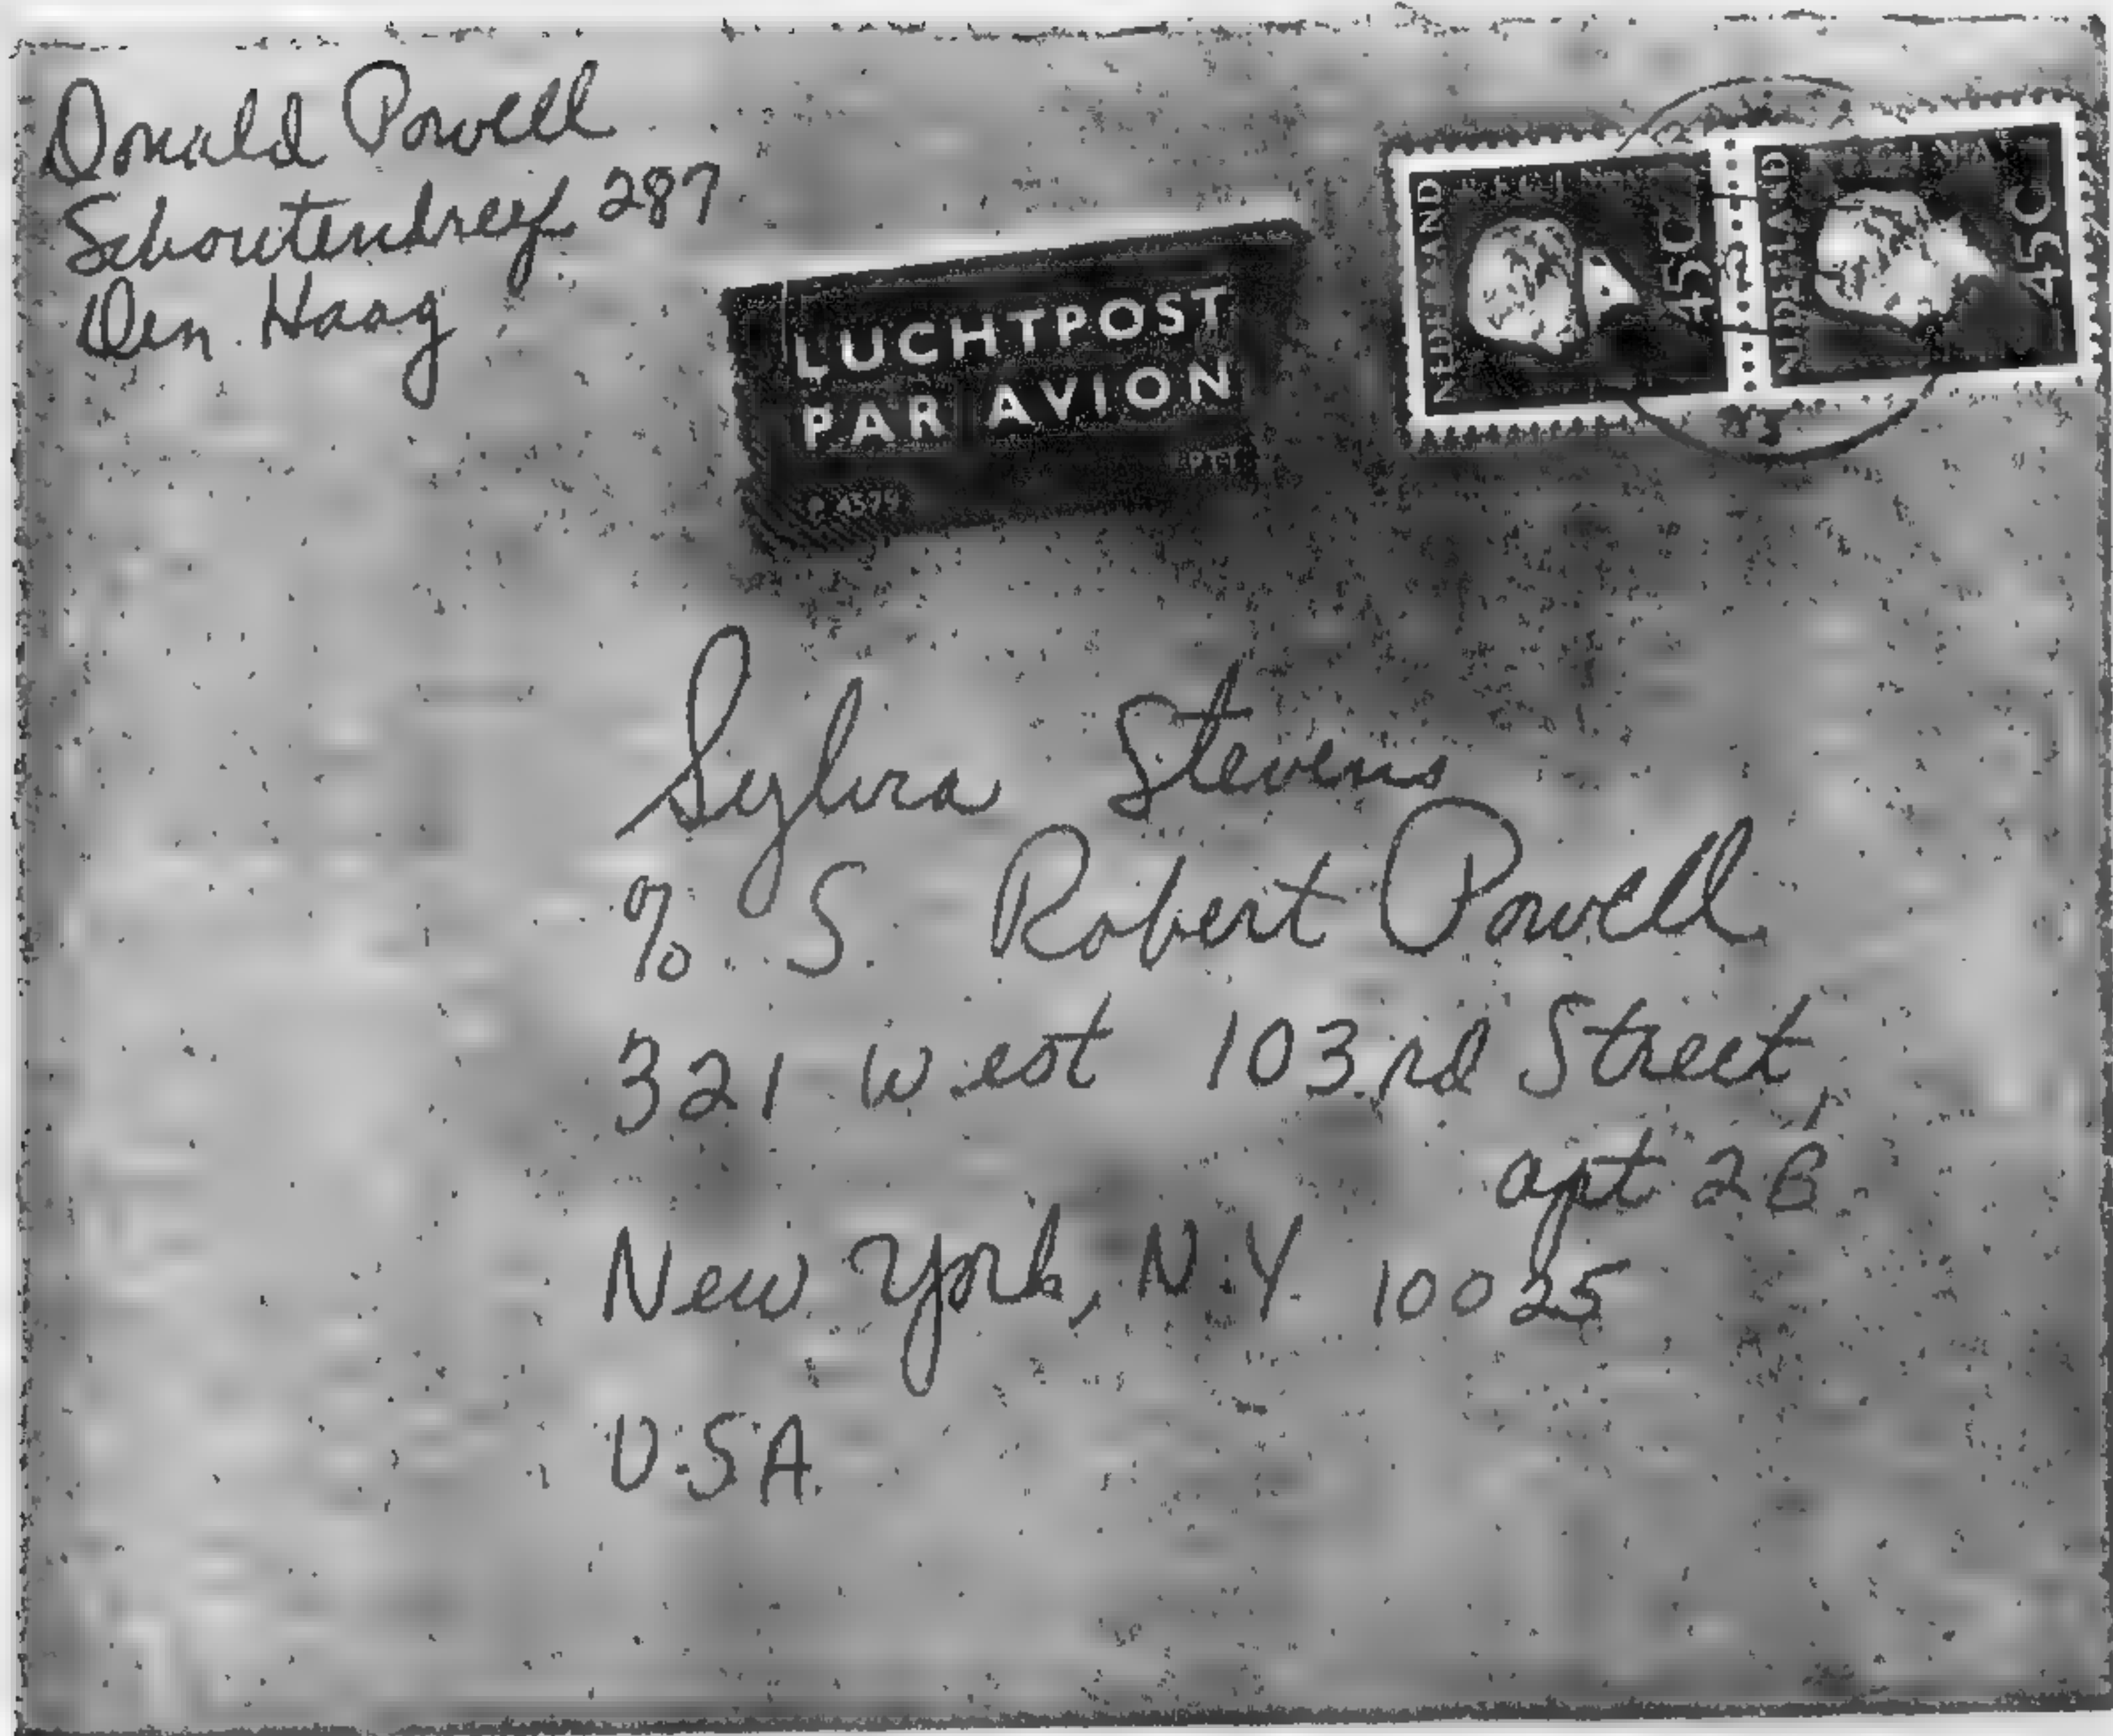 Donald Powell
Schoutendreef 287
Den Haag
LUCHTPOST
PAR AVION
PTT
P 4579
NEDERLAND 45C
NEDERLAND 45C
Sylvia Stevens
% S. Robert Powell
321 West 103rd Street,
apt 2B
New York, N.Y. 10025
U.S.A.